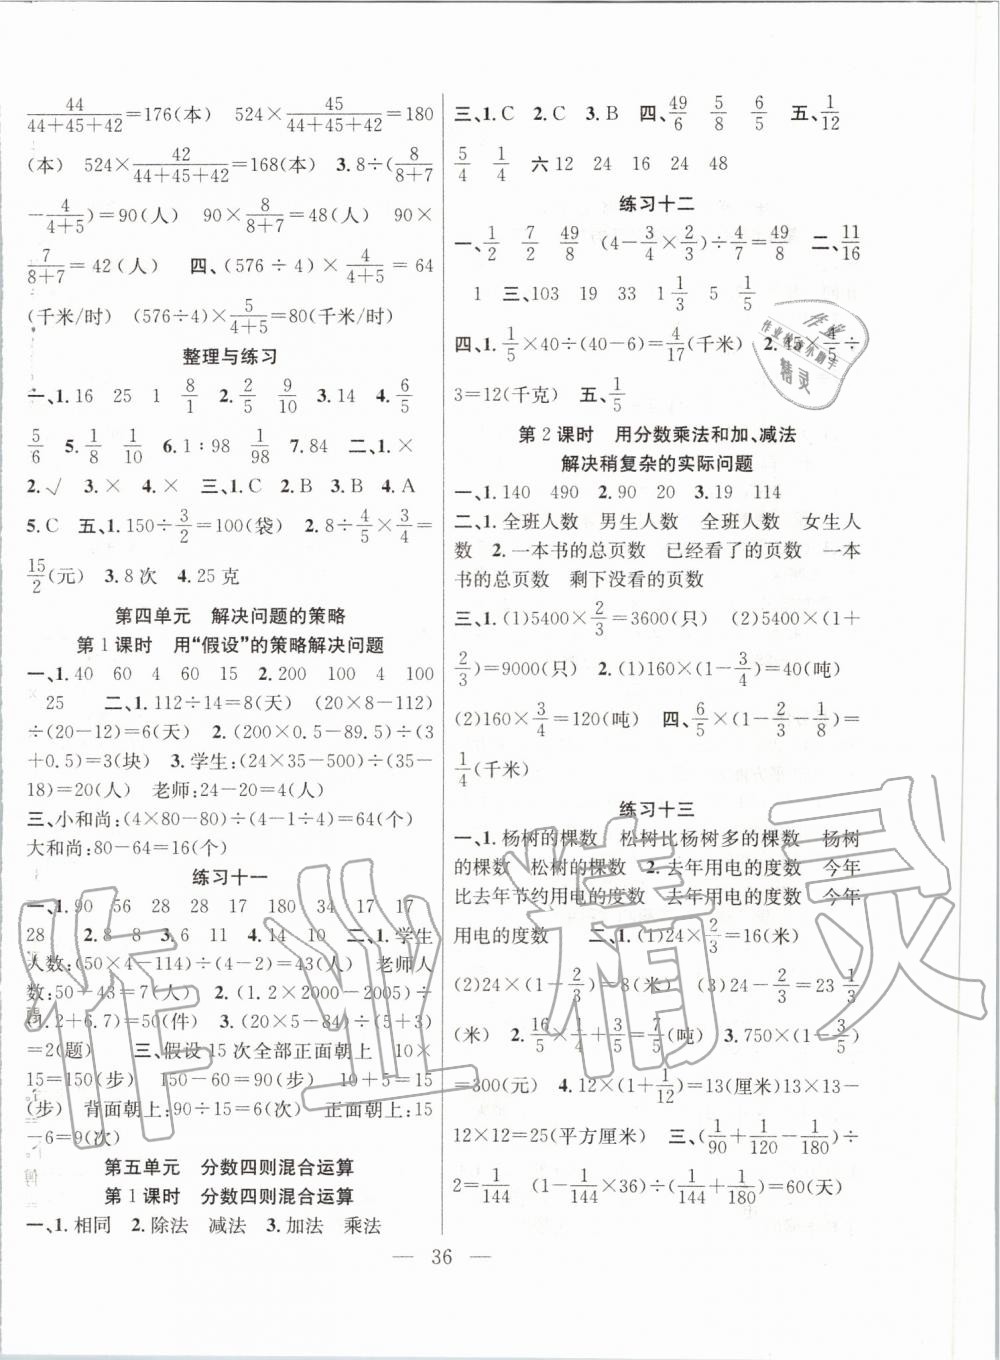 44/(44+45+42)=176(本) 524×45/(44+45+42)=180
(本) 524×42/(44+45+42)=168(本) 3.8÷(8/(8+7)
-4/(4+5))=90(人) 90×8/(8+7)=48(人) 90×
7/(8+7)=42(人) 四、(576÷4)×4/(4+5)=64
(千米/时) (576÷4)×5/(4+5)=80(千米/时)
整理与练习
一、1.16 25 1 8/1 2.2/5 9/10 3.14 4.6/5
5/6 5.1/8 1/10 6.1∶98 1/98 7.84 二、1.×
2.√ 3.× 4.× 三、1.C 2.B 3.B 4.A
5.C 五、1.150÷3/2=100(袋) 2.8÷4/5×3/4=
15/2(元) 3.8次 4.25克
第四单元 解决问题的策略
第1课时 用“假设”的策略解决问题
一、1.40 60 4 60 15 2.200 100 4 100
25 二、1.112÷14=8(天) (20×8-112)
÷(20-12)=6(天) 2.(200×0.5-89.5)÷(3
+0.5)=3(块) 3.学生:(24×35-500)÷(35-
18)=20(人) 老师:24-20=4(人)
三、小和尚:(4×80-80)÷(4-1÷4)=64(个)
大和尚:80-64=16(个)
练习十一
一、1.90 56 28 28 17 180 34 17 17
28 2.8 8 3.6 11 4.14 10 二、1.学生
人数:(50×4-114)÷(4-2)=43(人) 老师人
数:50-43=7(人) 2.(1.2×2000-2005)÷
(1.2+6.7)=50(件) 3.(20×5-84)÷(5+3)
=2(题) 三、假设15次全部正面朝上 10×
15=150(步) 150-60=90(步) 10+5=15
(步) 背面朝上:90÷15=6(次) 正面朝上:15
-6=9(次)
第五单元 分数四则混合运算
第1课时 分数四则混合运算
一、1.相同 2.除法 减法 3.加法 乘法
三、1.C 2.C 3.B 四、49/6 5/8 6/5 五、1/12
5/4 1/4 六 12 24 16 24 48
练习十二
一、1/2 7/2 49/8 (4-3/4×2/3)÷4/7=49/8 二、11/16
1 三、103 19 33 1 1/3 5 1/5
四、1.1/5×40÷(40-6)=4/17(千米) 2.15×4/5÷
3=12(千克) 五、1/5
第2课时 用分数乘法和加、减法
解决稍复杂的实际问题
一、1.140 490 2.90 20 3.19 114
二、1.全班人数 男生人数 全班人数 女生人
数 2.一本书的总页数 已经看了的页数 一本
书的总页数 剩下没看的页数
三、1.(1)5400×2/3=3600(只) (2)5400×(1+
2/3)=9000(只) 2.(1)160×(1-3/4)=40(吨)
(2)160×3/4=120(吨) 四、6/5×(1-2/3-1/8)=
1/4(千米)
练习十三
一、1.杨树的棵数 松树比杨树多的棵数 杨树
的棵数 松树的棵数 2.去年用电的度数 今年
比去年节约用电的度数 去年用电的度数 今年
用电的度数 二、1.(1)24×2/3=16(米)
(2)24×(1-2/3)=8(米) (3)24-2/3=23 1/3
(米) 2.16/5×1/4+3/5=7/5(吨) 3.750×(1-3/5)
=300(元) 4.12×(1+1/12)=13(厘米)13×13-
12×12=25(平方厘米) 三、(1/90+1/120-1/180)÷
2=1/144 (1-1/144×36)÷(1/144-1/180)=60(天)
36
作业
作业检查小助手
精灵
作业精灵